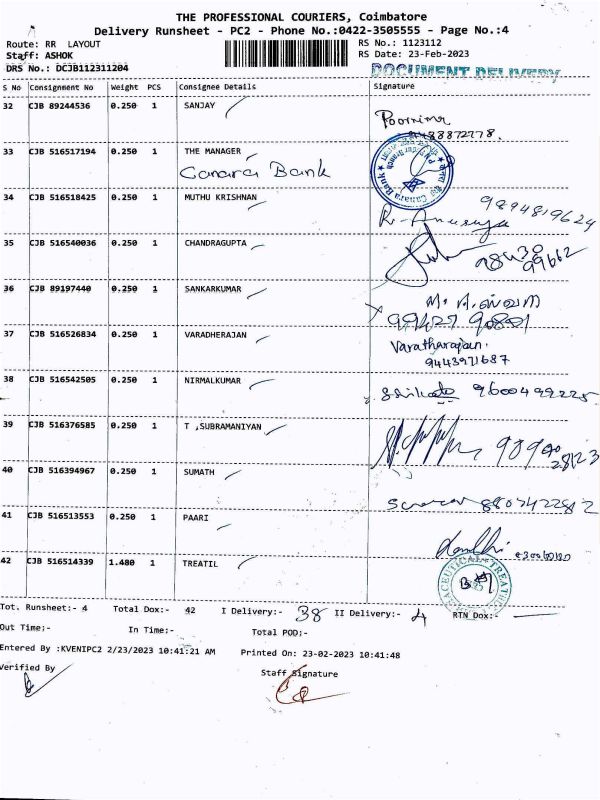 THE PROFESSIONAL COURIERS, Coimbatore
Delivery Runsheet - PC2 - Phone No.:0422-3505555 - Page No.:4
Route: RR LAYOUT
RS No.: 1123112
Staff: ASHOK
RS Date: 23-Feb-2023
DRS No.: DCJB112311204
DOCUMENT DELIVERY
S No Consignment No Weight PCS Consignee Details Signature
32 CJB 89244536 0.250 1 SANJAY
Poornima
9488872778.
33 CJB 516517194 0.250 1 THE MANAGER
Canara Bank
34 CJB 516518425 0.250 1 MUTHU KRISHNAN
9894819624
R. Anusuya
35 CJB 516540036 0.250 1 CHANDRAGUPTA
98430
99662
36 CJB 89197440 0.250 1 SANKARKUMAR
37 CJB 516526834 0.250 1 VARADHERAJAN
Varatharajan.
9443971687
38 CJB 516542505 0.250 1 NIRMALKUMAR
9600499225
39 CJB 516376585 0.250 1 T ,SUBRAMANIYAN
40 CJB 516394967 0.250 1 SUMATH
41 CJB 516513553 0.250 1 PAARI
42 CJB 516514339 1.480 1 TREATIL
Tot. Runsheet:- 4 Total Dox:- 42 I Delivery:- 38 II Delivery:- 4 RTN Dox:-
Out Time:- In Time:- Total POD:-
Entered By :KVENIPC2 2/23/2023 10:41:21 AM Printed On: 23-02-2023 10:41:48
Verified By Staff Signature